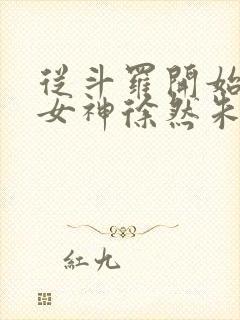 從斗羅開始
女神徐然朱
紅九